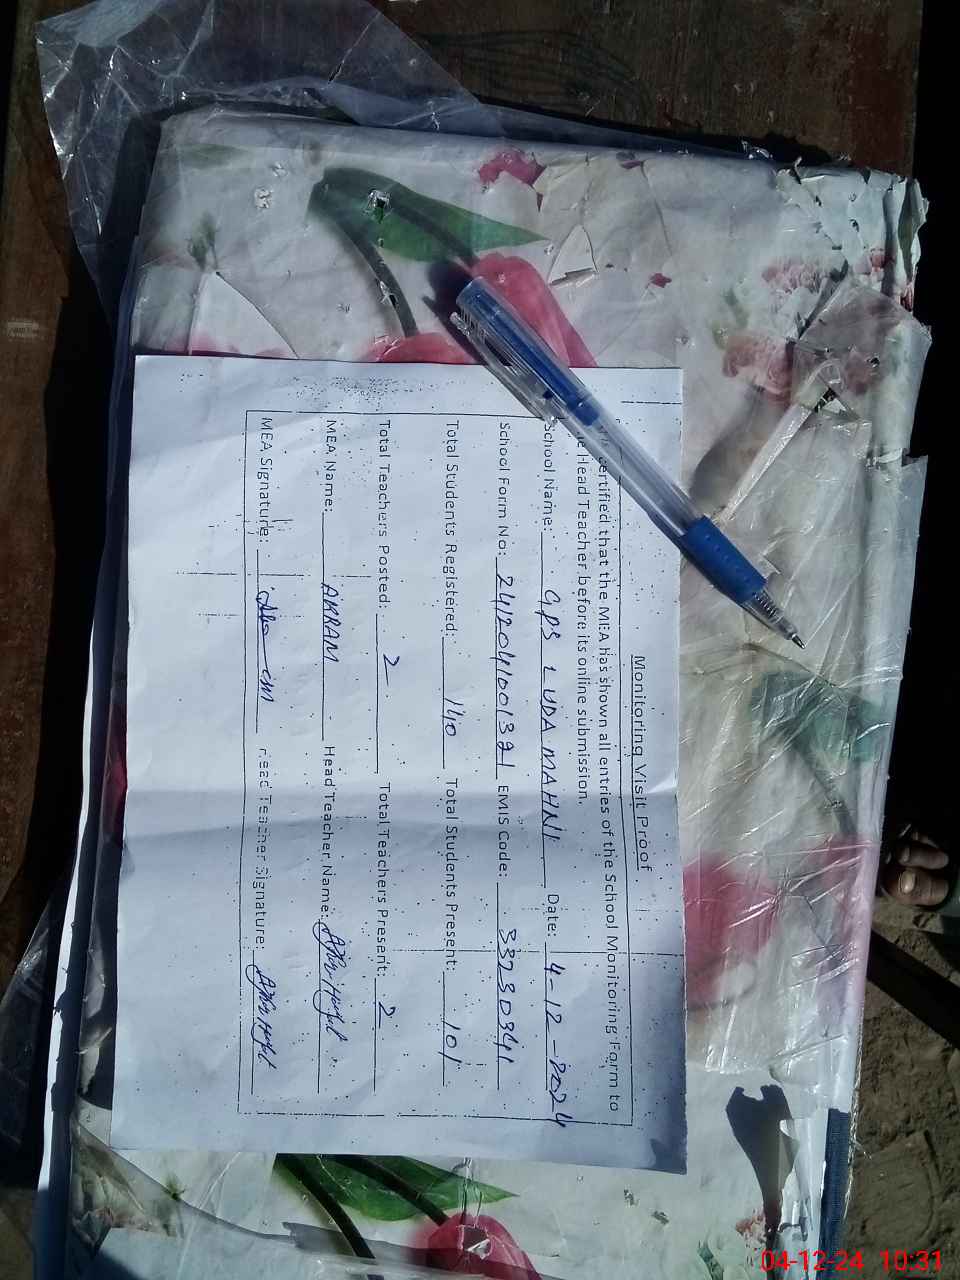 Monitoring Visit Proof
certified that the MEA has shown all entries of the School Monitoring Form to
Head Teacher before its online submission.
School Name: GPS LUDA MAHNI Date: 4-12-2024
School Form No: EMIS Code: 33230341
Total Students Registered: 140 Total Students Present: 101
Total Teachers Posted: 2 Total Teachers Present: 2
MEA Name: AKRAM Head Teacher Name:
MEA Signature: Head Teacher Signature:
04-12-24 10:31